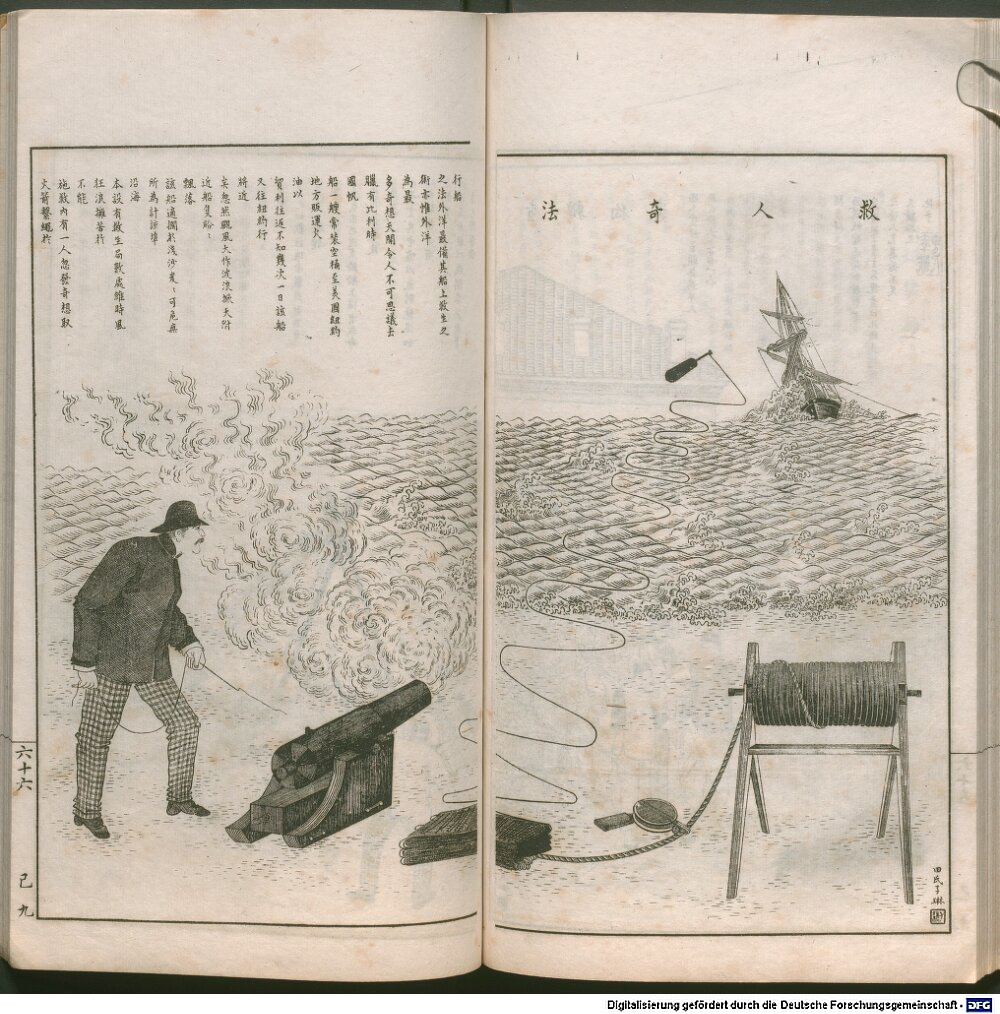 救人奇法
行船
之法外洋最備其船上救生之
術亦惟外洋
為最
多奇想天開令人不可思議去
臘有比利時
國帆
船一艘常裝空桶至美國紐約
地方販運火
油以
貿利往返不知幾次一日該船
又往紐約行
將近
矣忽然颶風大作波浪掀天附
近船隻紛〻
飄落
該船適擱於淺沙岌〻可危無
所為計該埠
沿海
本設有救生局數處維時風
狂浪擁苦於
不能
施救內有一人忽發奇想取
火箭繫繩於
田氏子琳
六十六
己九
Digitalisierung gefördert durch die Deutsche Forschungsgemeinschaft - DFG